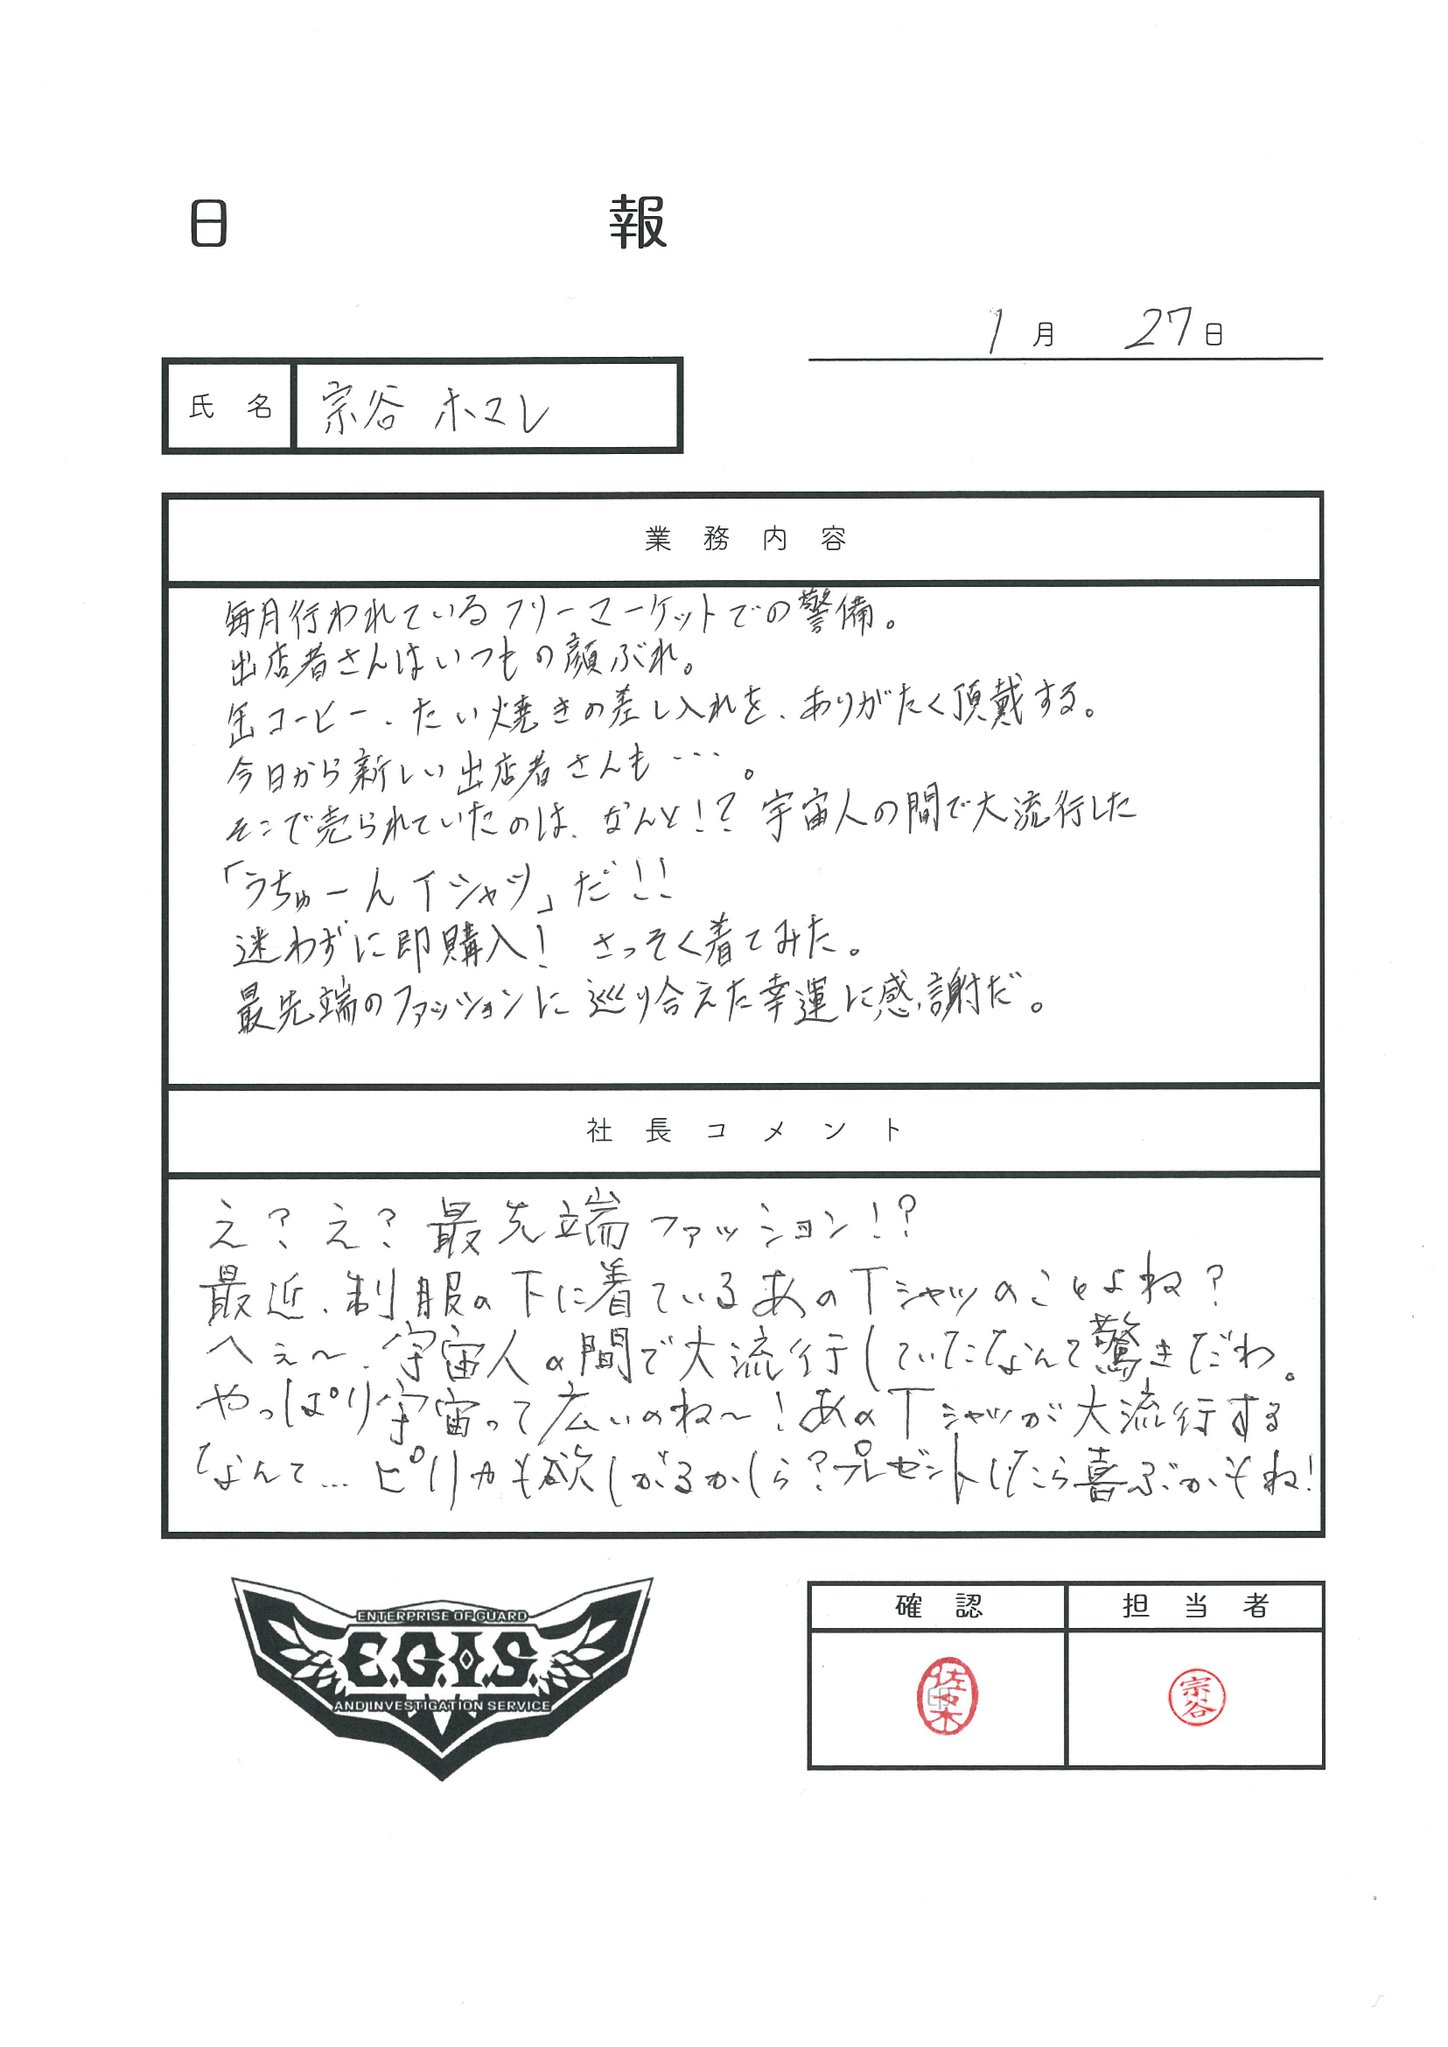 日報
1月 27日
氏名 宗谷 ホマレ
業務内容
毎月行われているフリーマーケットでの警備。
出店者さんはいつもの顔ぶれ。
缶コーヒー、たい焼きの差し入れを、ありがたく頂戴する。
今日から新しい出店者さんも…。
そこで売られていたのは、なんと!?宇宙人の間で大流行した
「うちゅーんTシャツ」だ!!
迷わずに即購入! さっそく着てみた。
最先端のファッションに巡り合えた幸運に感謝だ。
社長コメント
え?え?最先端ファッション!?
最近、制服の下に着ているあのTシャツのことよね?
へぇ〜、宇宙人の間で大流行していたなんて驚きだわ。
やっぱり宇宙って広いのね〜!あのTシャツが大流行する
なんて…ピリカも欲しがるかしら?プレゼントしたら喜ぶかもね!
ENTERPRISE OF GUARD
E.G.I.S.
AND INVESTIGATION SERVICE
確認 担当者
佐々木 印 宗谷